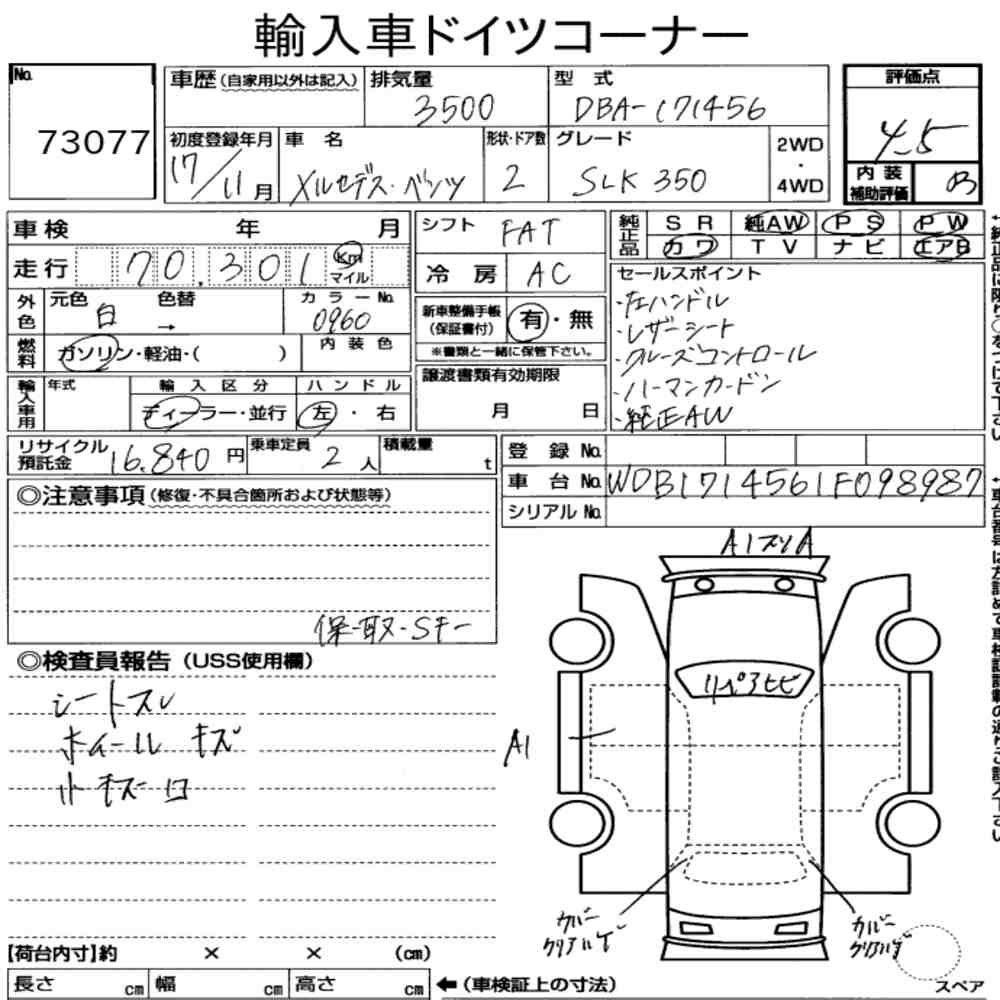 輸入車ドイツコーナー
No. 73077
車歴 (自家用以外は記入)
排気量 3500
型式 DBA-171456
評価点 4.5
内装補助評価 B
初度登録年月 17/11月
車名 メルセデス・ベンツ
形状・ドア数 2
グレード SLK 350
2WD・4WD
車検 年 月
シフト FAT
純正品 SR 純AW PS PW
カワ TV ナビ エアB
走行 70,301 Km マイル
冷房 AC
セールスポイント
・左ハンドル
・レザーシート
・クルーズコントロール
・ハーマンカードン
・純正AW
外色 元色 白 → 色替
カラーNo. 0960
新車整備手帳(保証書付) 有・無
※書類と一緒に保管下さい。
燃料 ガソリン・軽油・( )
内装色
譲渡書類有効期限
月 日
輸入車用 年式 輸入区分 ハンドル
ディーラー・並行 左・右
リサイクル預託金 16,840円
乗車定員 2人
積載量 t
登録No.
車台No. WDB1714561F098987
シリアルNo.
◎注意事項 (修復・不具合箇所および状態等)
保・取・SキーA1スソA
◎検査員報告 (USS使用欄)
シートスレ
ホイール キズ
小キズ凹
リペアヒビ
A1
カバークリアハゲ
カバークリアハゲ
【荷台内寸】約 × × (cm)
長さ cm 幅 cm 高さ cm ←(車検証上の寸法)
スペア